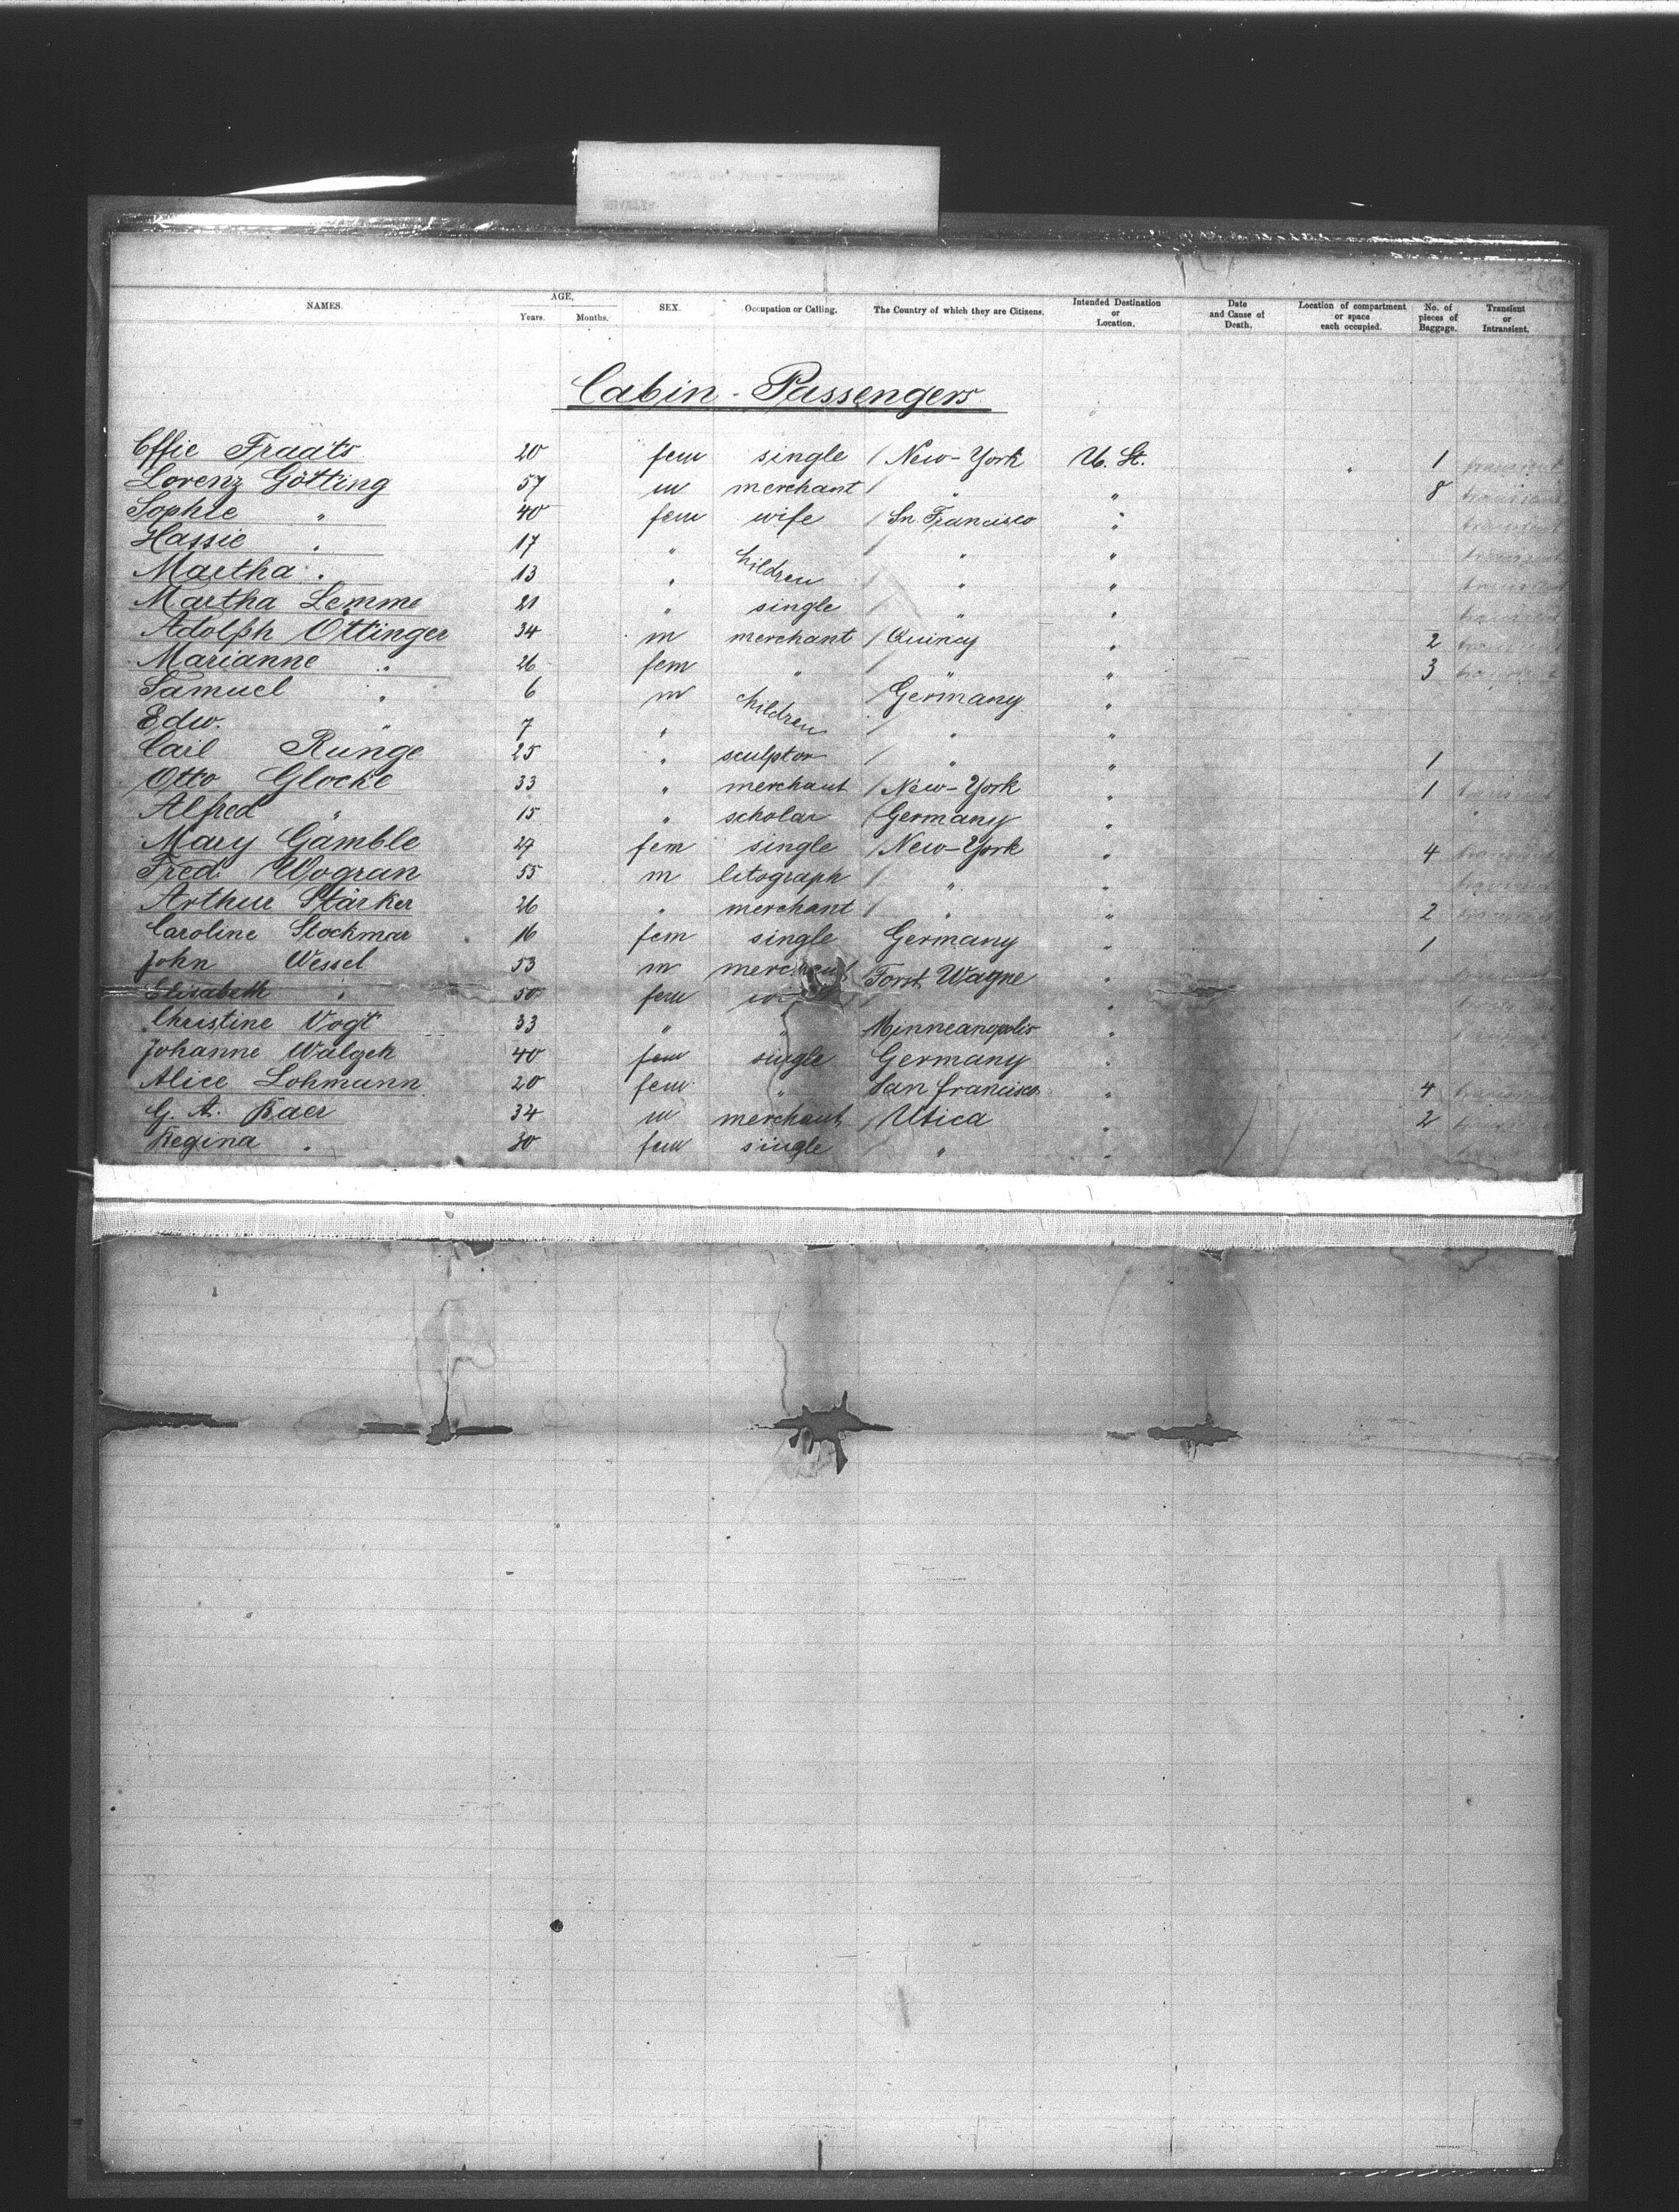 NAMES. AGE, Years. Months. SEX. Occupation or Calling. The Country of which they are Citizens. Intended Destination or Location. Date and Cause of Death. Location of compartment or space each occupied. No. of pieces of Baggage. Transient or Intransient.
Cabin - Passengers
Effie Fraats 20 fem single / New-York U. St. 1
Lorenz Götting 57 m merchant / " " 8
Sophie " 40 fem wife / Sn. Francisco "
Hassie " 17 " / " "
Martha " 13 " children / " "
Martha Lemme 21 " single / " "
Adolph Ottinger 34 m merchant / Quincy " 2
Marianne " 26 fem " / " " 3
Samuel " 6 m children / Germany "
Edw. " 7 " / " "
Carl Runge 25 " sculptor / " " 1
Otto Glocke 33 " merchant / New-York " 1
Alfred " 15 " scholar / Germany "
Mary Gamble 27 fem single / New-York " 4
Fred. Wogran 55 m litograph / " "
Arthur Stärker 26 " merchant / " " 2
Caroline Stockmar 16 fem single Germany " 1
John Wessel 53 m merchant / Forst Wayne "
Elisabeth " 50 fem " "
Christine Vogt 33 " " Minneanopolis "
Johanne 40 fem single Germany "
Alice Lohmann 20 fem " San francisco " 4
G. A. Baer 34 m merchant / Utica " 2
Regina " 30 fem single / " "